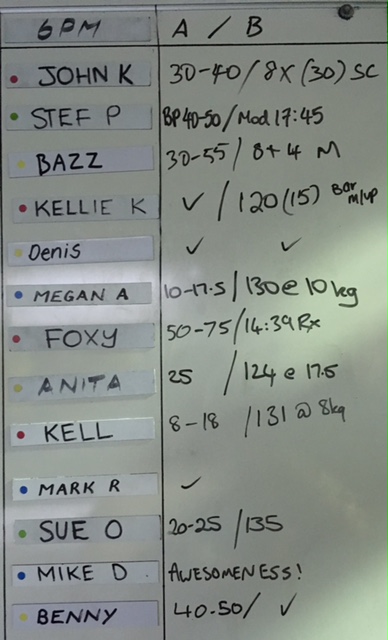 6PM A / B
JOHN K 30-40 / 8X (30) SC
STEF P BP 40-50 / Mod 17:45
BAZZ 30-55 / 8+4 M
KELLIE K ✓ / 120 (15) Bar m/up
Denis ✓ ✓
MEGAN A 10-17.5 / 130 @ 10kg
FOXY 50-75 / 14:39 Rx
ANITA 25 / 124 @ 17.5
KELL 8-18 / 131 @ 8kg
MARK R ✓
SUE O 20-25 / 135
MIKE D AWESOMENESS!
BENNY 40-50 / ✓